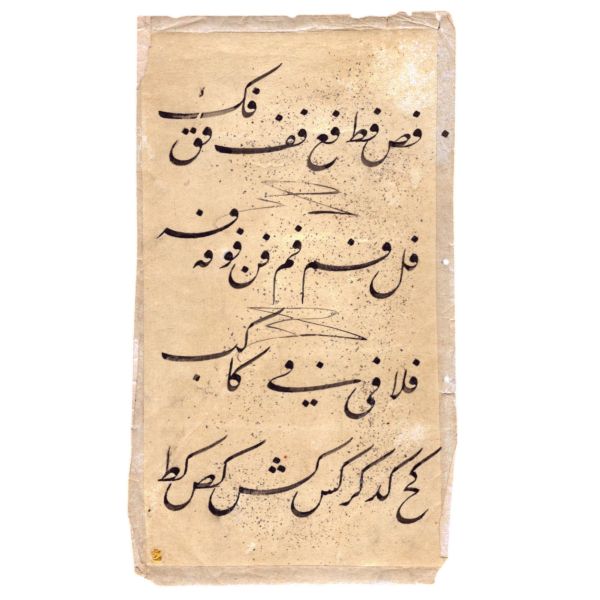 فص فط فع فف فق فک
فل فم فم فن فو فه فه
فلا فی فی کا کب
کج کد کر کس کش کص کط